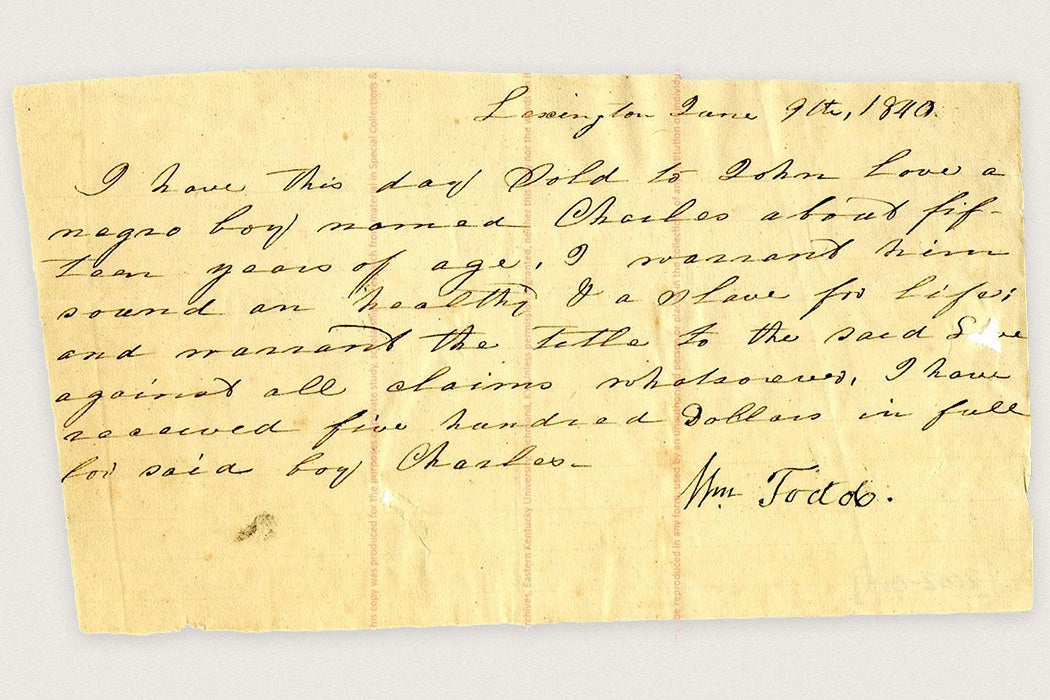 Lexington June 9th, 1840.
I have this day Sold to John Love a
negro boy named Charles about fif-
teen years of age, I warrant him
sound an healthy & a slave for life;
and warrant the title to the said
against all claims whatsoever, I have
received five hundred Dollars in full
for said boy Charles-
Wm Todd.
This copy was produced for the purposes of private study, from material in Special Collections &
Archives, Eastern Kentucky University, Richmond, KY unless permission is granted, neither this nor the words in it
be reproduced in any form, used by an unauthorized person or placed in the collection of an institution or individual